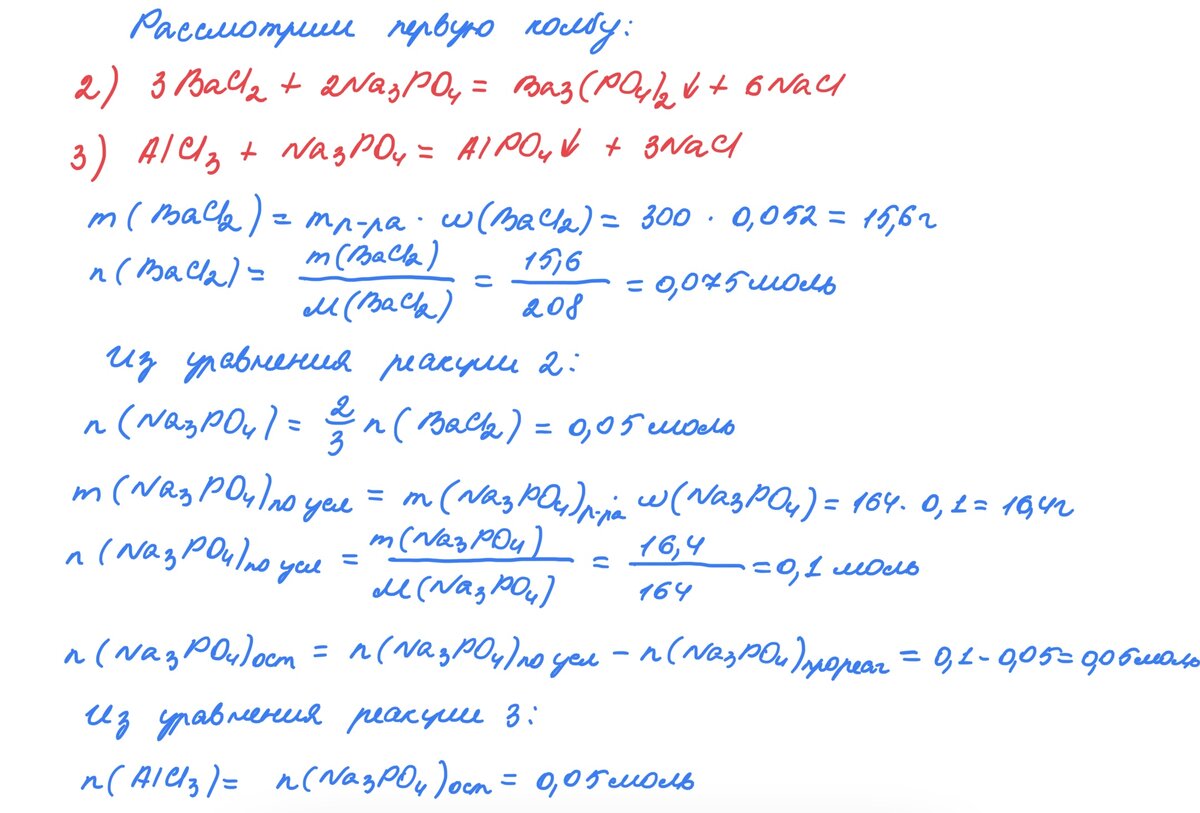 Рассмотрим первую колбу:
2) 3BaCl₂ + 2Na₃PO₄ = Ba₃(PO₄)₂↓ + 6NaCl
3) AlCl₃ + Na₃PO₄ = AlPO₄↓ + 3NaCl
m(BaCl₂) = mр-ра · ω(BaCl₂) = 300 · 0,052 = 15,6г
n(BaCl₂) = m(BaCl₂)/M(BaCl₂) = 15,6/208 = 0,075моль
Из уравнения реакции 2:
n(Na₃PO₄) = 2/3 n(BaCl₂) = 0,05моль
m(Na₃PO₄)по усл = m(Na₃PO₄)р-ра · ω(Na₃PO₄) = 164 · 0,1 = 16,4г
n(Na₃PO₄)по усл = m(Na₃PO₄)/M(Na₃PO₄) = 16,4/164 = 0,1 моль
n(Na₃PO₄)ост = n(Na₃PO₄)по усл - n(Na₃PO₄)прореаг = 0,1 - 0,05 = 0,05моль
Из уравнения реакции 3:
n(AlCl₃) = n(Na₃PO₄)ост = 0,05моль